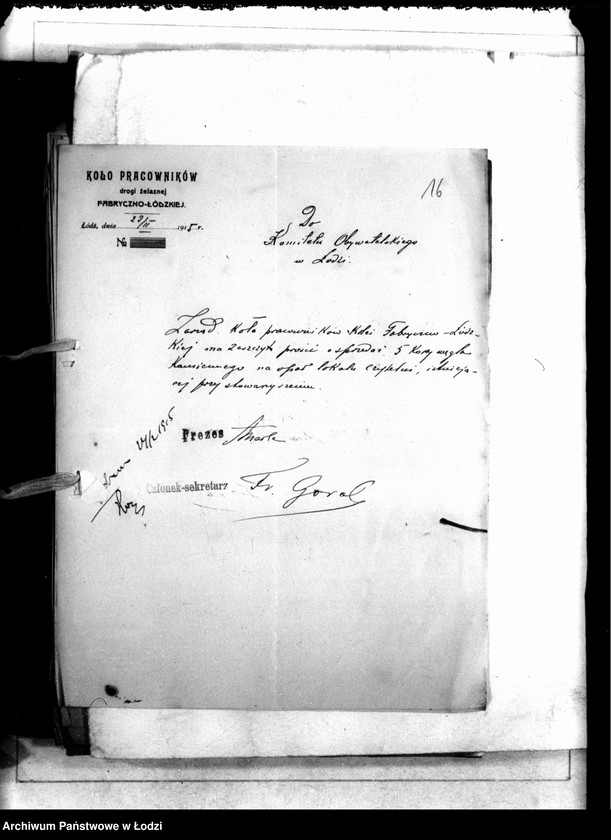 KOŁO PRACOWNIKÓW
drogi żelaznej
FABRYCZNO-ŁÓDZKIEJ.
Łódź, dnia 23/II 1915 r.
№
16
Do
Komitetu Obywatelskiego
w Łodzi.
Zarząd Koła pracowników Kolei Fabryczno-Łódz-
kiej ma zaszczyt prosić o sprzedaż 5 korcy węgla
kamiennego na opał lokalu czytelni, istnieją-
cej przy stowarzyszeniu.
Prezes
Członek-sekretarz Fr. Goral
Archiwum Państwowe w Łodzi